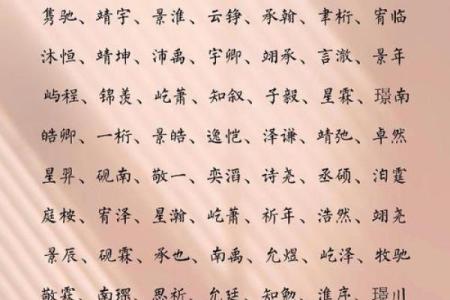 隽驰、靖宇、景淮、云铮、承翰、聿桁、宥临
沐恒、靖坤、沛禹、宇卿、翊承、言澈、景年
屿程、锦羡、屹萧、知叙、子毅、星霖、璟南
皓卿、一桁、景皓、逸恺、泽谦、靖弛、卓然
星羿、砚南、敬一、奕滔、诗尧、丞硕、洦霆
庭桉、宥泽、星瀚、屹萧、祈年、浩然、翊尧
景辰、砚霖、承也、南禹、允煜、屹泽、牧驰
敬霖、南琛、思祈、允廷、知勉、淮序、璟川